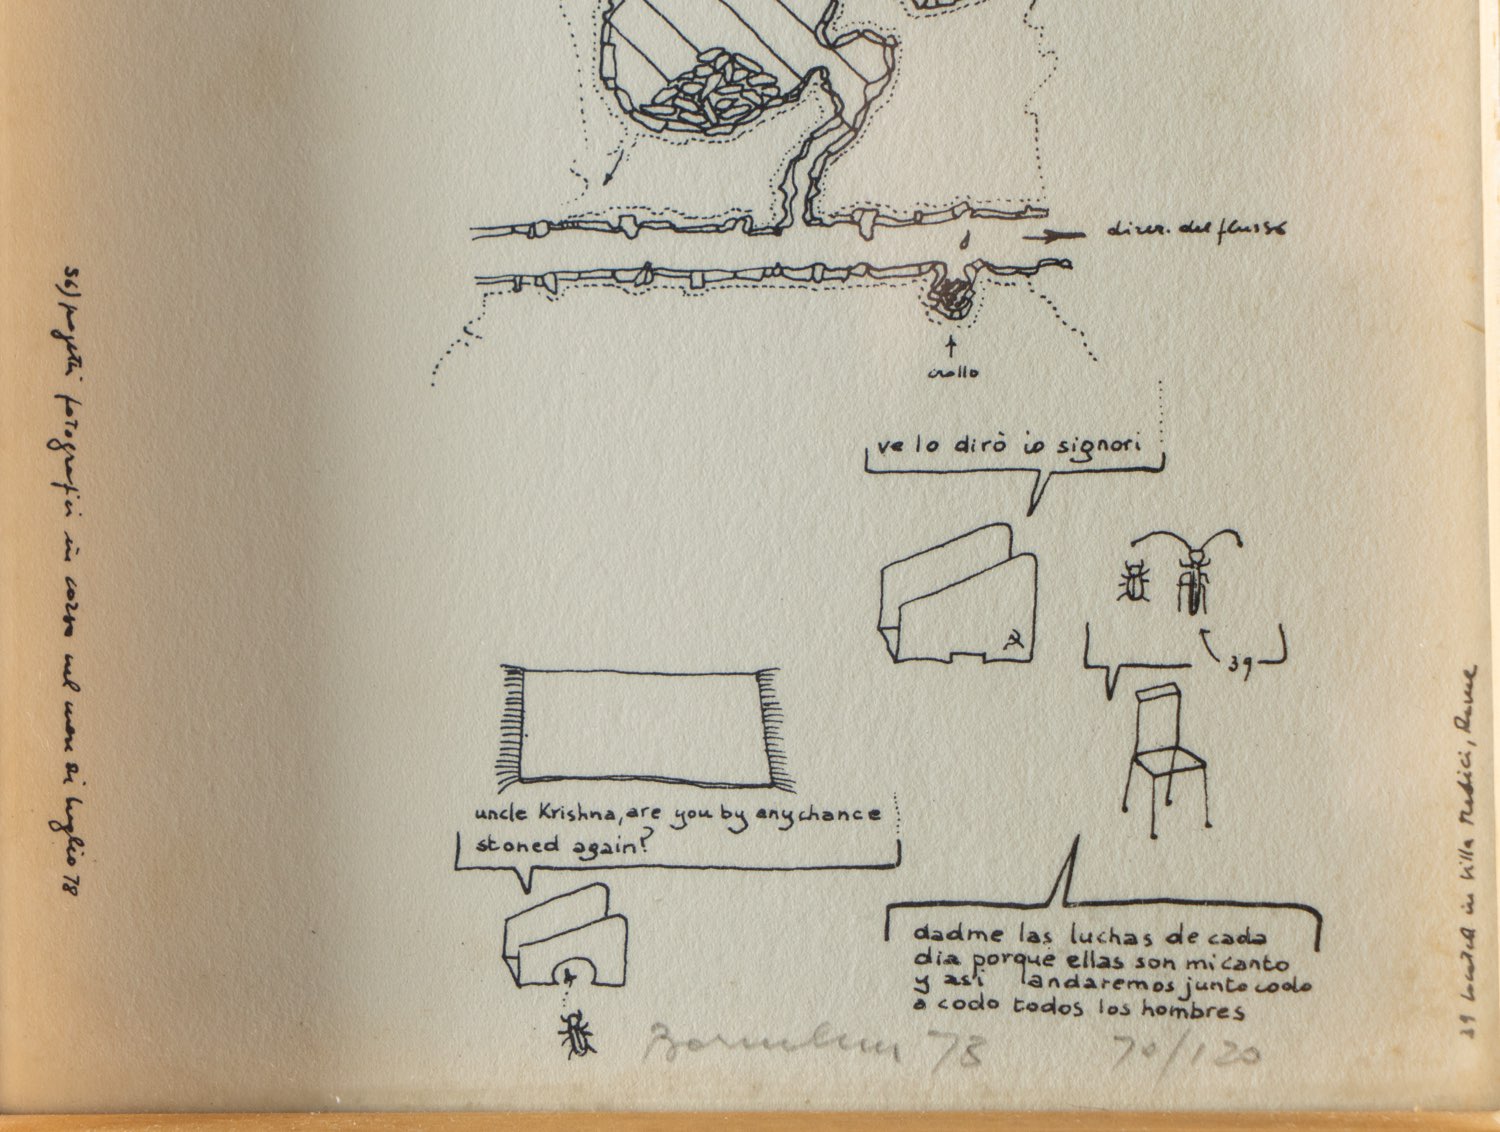 direz. del flusso
crollo
ve lo dirò io signori
39
uncle Krishna, are you by anychance
stoned again?
dadme las luchas de cada
dia porque ellas son mi canto
y asi landaremos junto codo
a codo todos los hombres
78
70/120
56) progetti fotografici in corso nel mese di luglio 78
39 located in Villa Medici, Rome